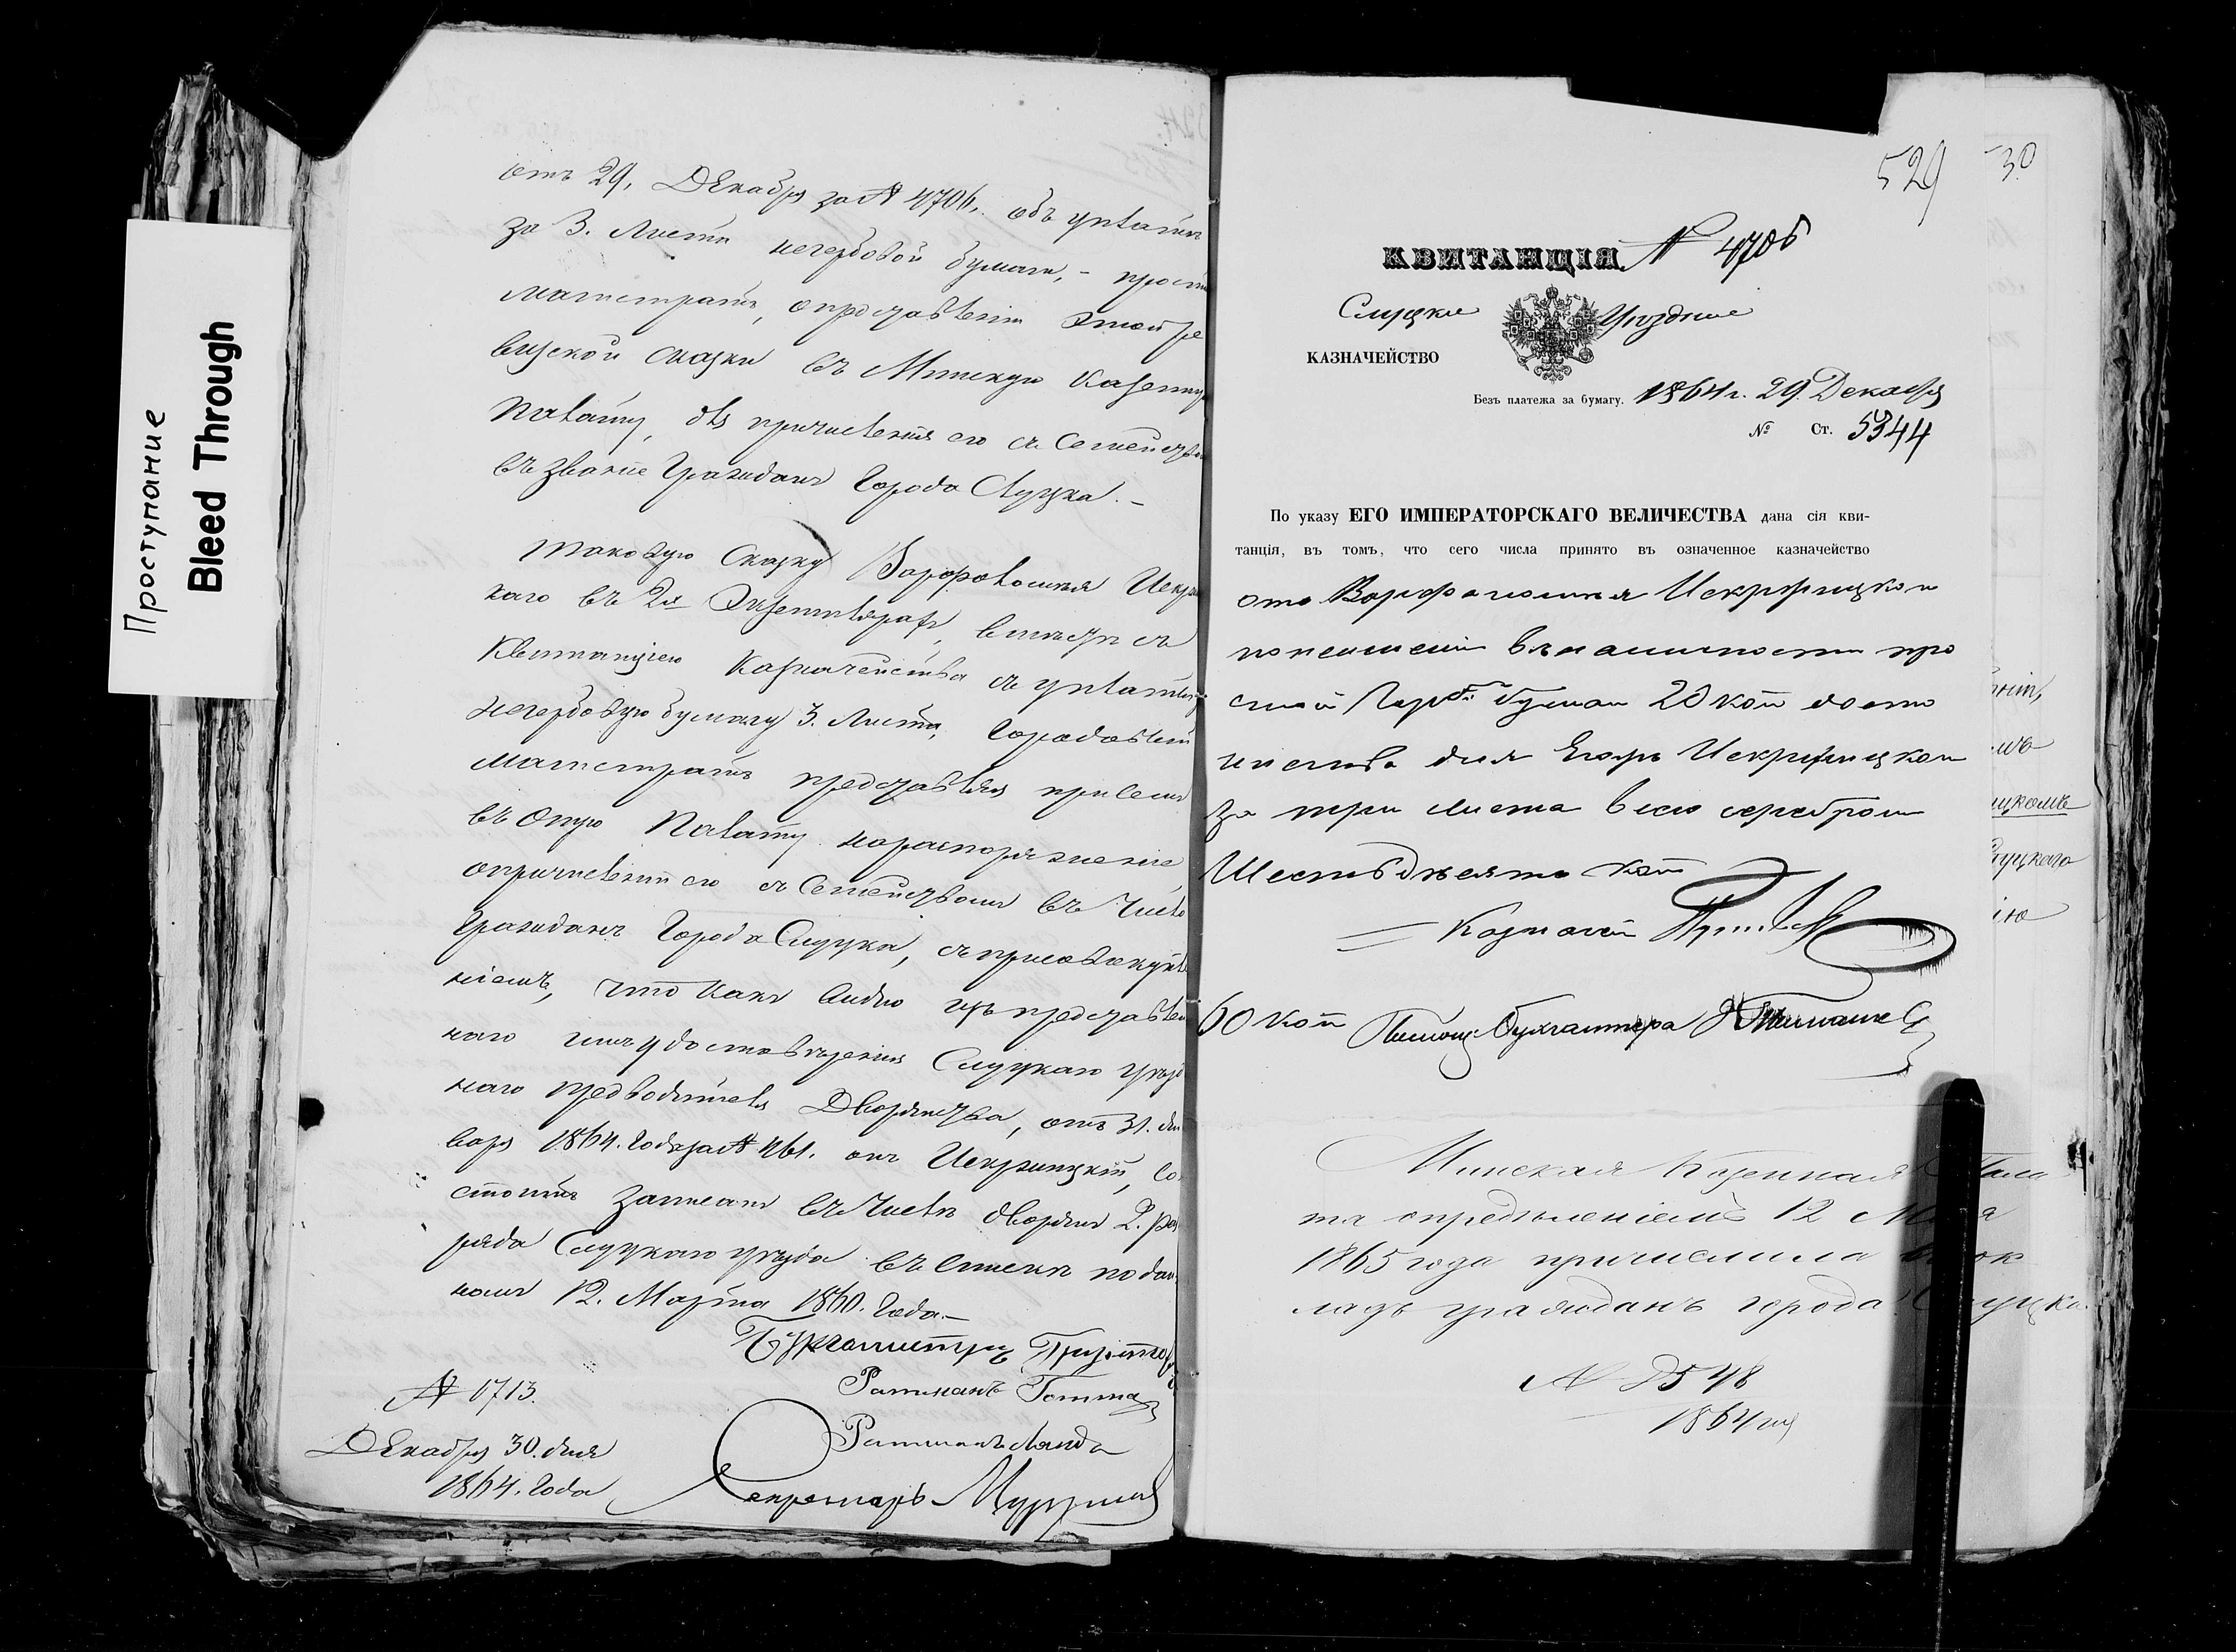 Проступание
Bleed Through
отъ 29, Декабря за № 4706, объ уплатѣ
за 3. Листа негербовой бумаги, – проситъ
Магистратъ, о представленіи этой ре
визской сказки въ Минскую Казенную
Палату, для причисленія его съ Семействомъ
въ званіе Гражданъ Города Слуцка. –
Таковую Сказку Варфоломея Искриц
каго въ 2хъ Экземплярахъ, вмѣстѣ съ
Квитанціею Казначейства съ уплатою за
негербовую бумагу 3. Листа, Городовый
Магистратъ представляя при семъ
въ оную Палату на распоряженіе
о причисленіи его съ Семействомъ въ Число
Гражданъ Города Слуцка, съ присовокупле
ніемъ, что какъ видно изъ представлен
наго имъ удостовѣренія Слуцкаго уѣзд
наго предводителя Дворянства, отъ 31. Ян
варя 1864. Года за № 461. онъ Искрицкій, со
стоитъ записанъ въ Числѣ дворянъ 2. раз
ряда Слуцкаго уѣзда въ спискѣ подан
номъ 12. Марта 1860. Года. –
Бургомистръ
Ратманъ
Ратманъ Ланда
Секретарь
№ 1713.
Декабря 30. дня
1864. Года
529
30
КВИТАНЦІЯ № 4706
Слуцкое Уѣздное
КАЗНАЧЕЙСТВО
Безъ платежа за бумагу. 1864 г. 29. Декабря
№ Ст. 5344
По указу ЕГО ИМПЕРАТОРСКАГО ВЕЛИЧЕСТВА дана сія кви-
танція, въ томъ, что сего числа принято въ означенное казначейство
отъ Варфоломея Искрицкаго
про
стой Герб: бумаги 20 коп досто
инства для Искрицкаго
за три листа всего серебромъ
Шестьдесятъ коп
Казначей
60 коп Помощ: Бухгалтера
Минская Казенная Пала
та опредѣленіемъ 12 Мая
1865 года причислила въ ок
ладъ гражданъ города Слуцка.
№ 2548
1864 год